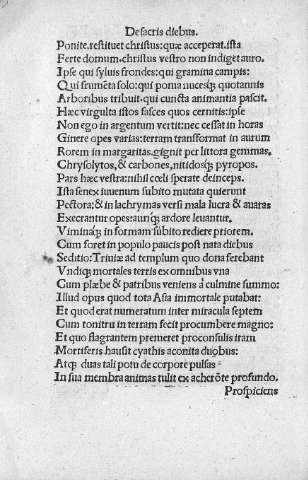 De sacris diebus.
Ponite. restituet christus: quæ acceperat. ista
Ferte domum. christus vestro non indiget auro.
Ipse qui syluis frondes: qui gramina campis:
Qui frumēta solo: qui poma nucesq; quotannis
Arboribus tribuit. qui cuncta animantia pascit.
Hæc virgulta istos fasces quos cernitis: ipse
Non ego in argentum vertit: nec cessat in horas
Ginere opes varias: terram transformat in aurum
Rorem in margaritas. gignit per littora gemmas.
Chrysolytos, & carbones, nitidosq; pyropos.
Pars hæc vestra: nihil cœli sperate deinceps.
Ista senex iuuenum subito mutata quierunt
Pectora; & in lachrymas versi mala lucra & auaras
Execrantur opes: auriq; ardore leuantur.
Viminaq; in formam subito rediere priorem.
Cum foret in populo paucis post nata diebus
Seditio: Triuiæ ad templum quo dona ferebant
Vndiq; mortales terris ex omnibus vna
Cum plæbe & patribus veniens à culmine summo:
Illud opus quod tota Asia immortale putabat:
Et quod erat numeratum inter miracula septem
Cum tonitru in terram fecit procumbere magno:
Et quo flagrantem premeret proconsulis iram
Mortiferis hausit cyathis aconita duobus:
Atq; duas tali potu de corpore pulsas
In sua membra animas tulit ex acherōte profundo.
Prospiciens